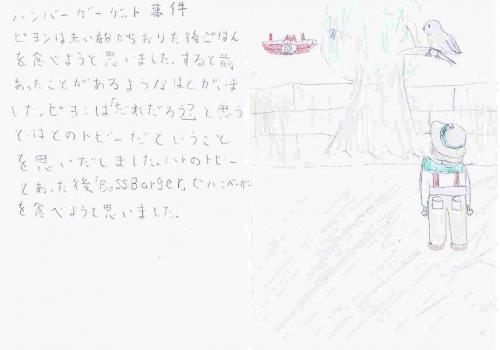 ハンバーガーゲット事件
ピヨンは赤い船からおりた後ごはん
を食べようと思いました。すると前
あったことがあるようなはとがいま
した。ピヨンは「だれだろう?」と思う
とはとのトビーだということ
を思いだしました。ハトのトビー
とあった後「BossBarger」でハンバーガー
を食べようと思いました。